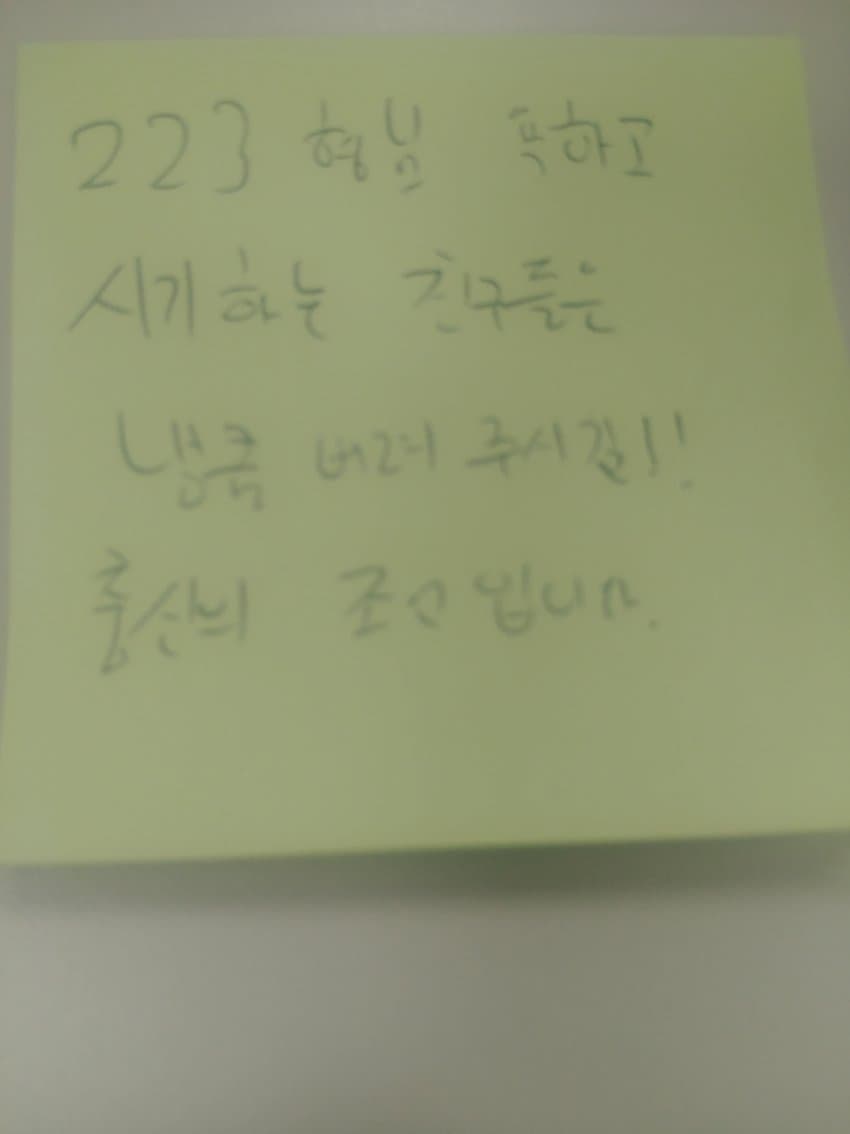 223 형님 독하고
시기하는 친구들은
버려 주시길!!
조언입니다.